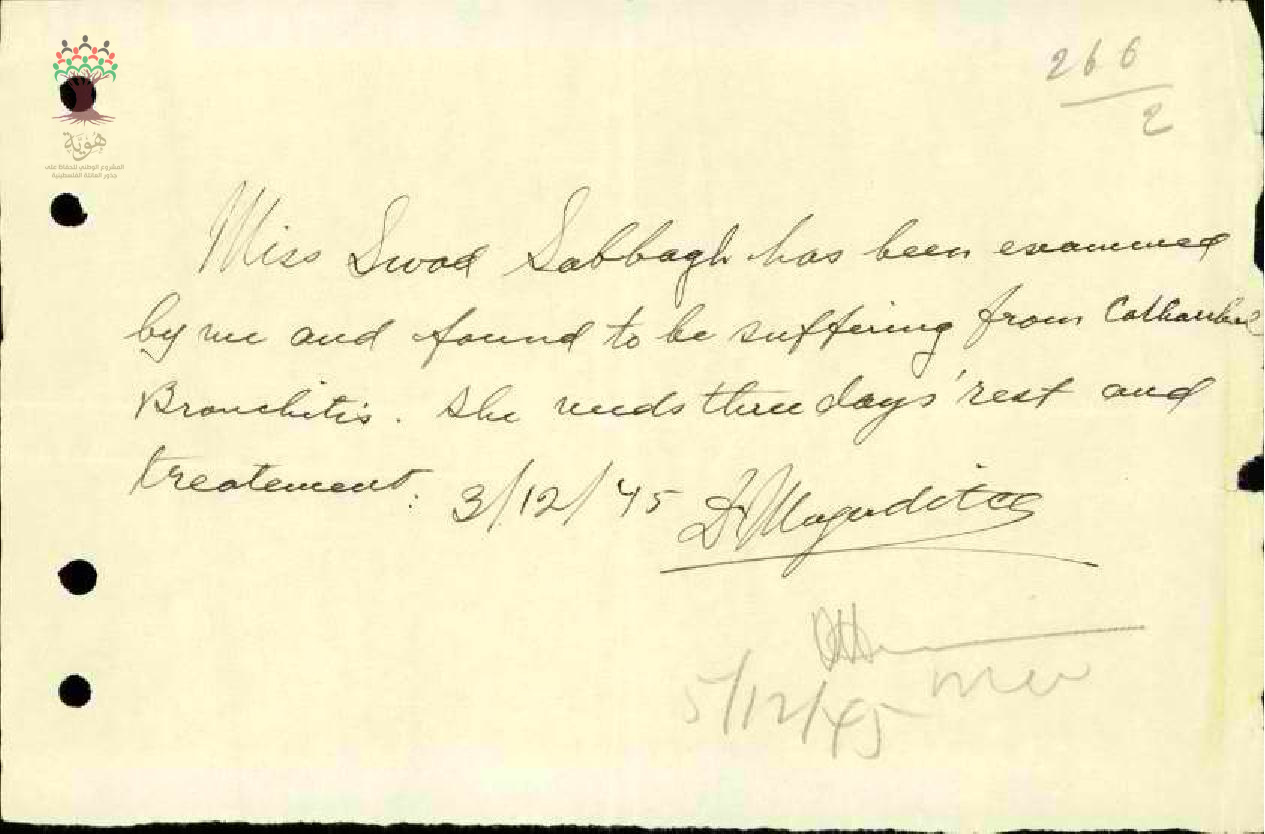 266
2
هُوِيَّة
المشروع الوطني للحفاظ على
جذور العائلة الفلسطينية
Miss Swad Sabbagh has been examined
by me and found to be suffering from
Bronchitis. She needs three days' rest and
treatement: 3/12/45 Dr
5/12/45